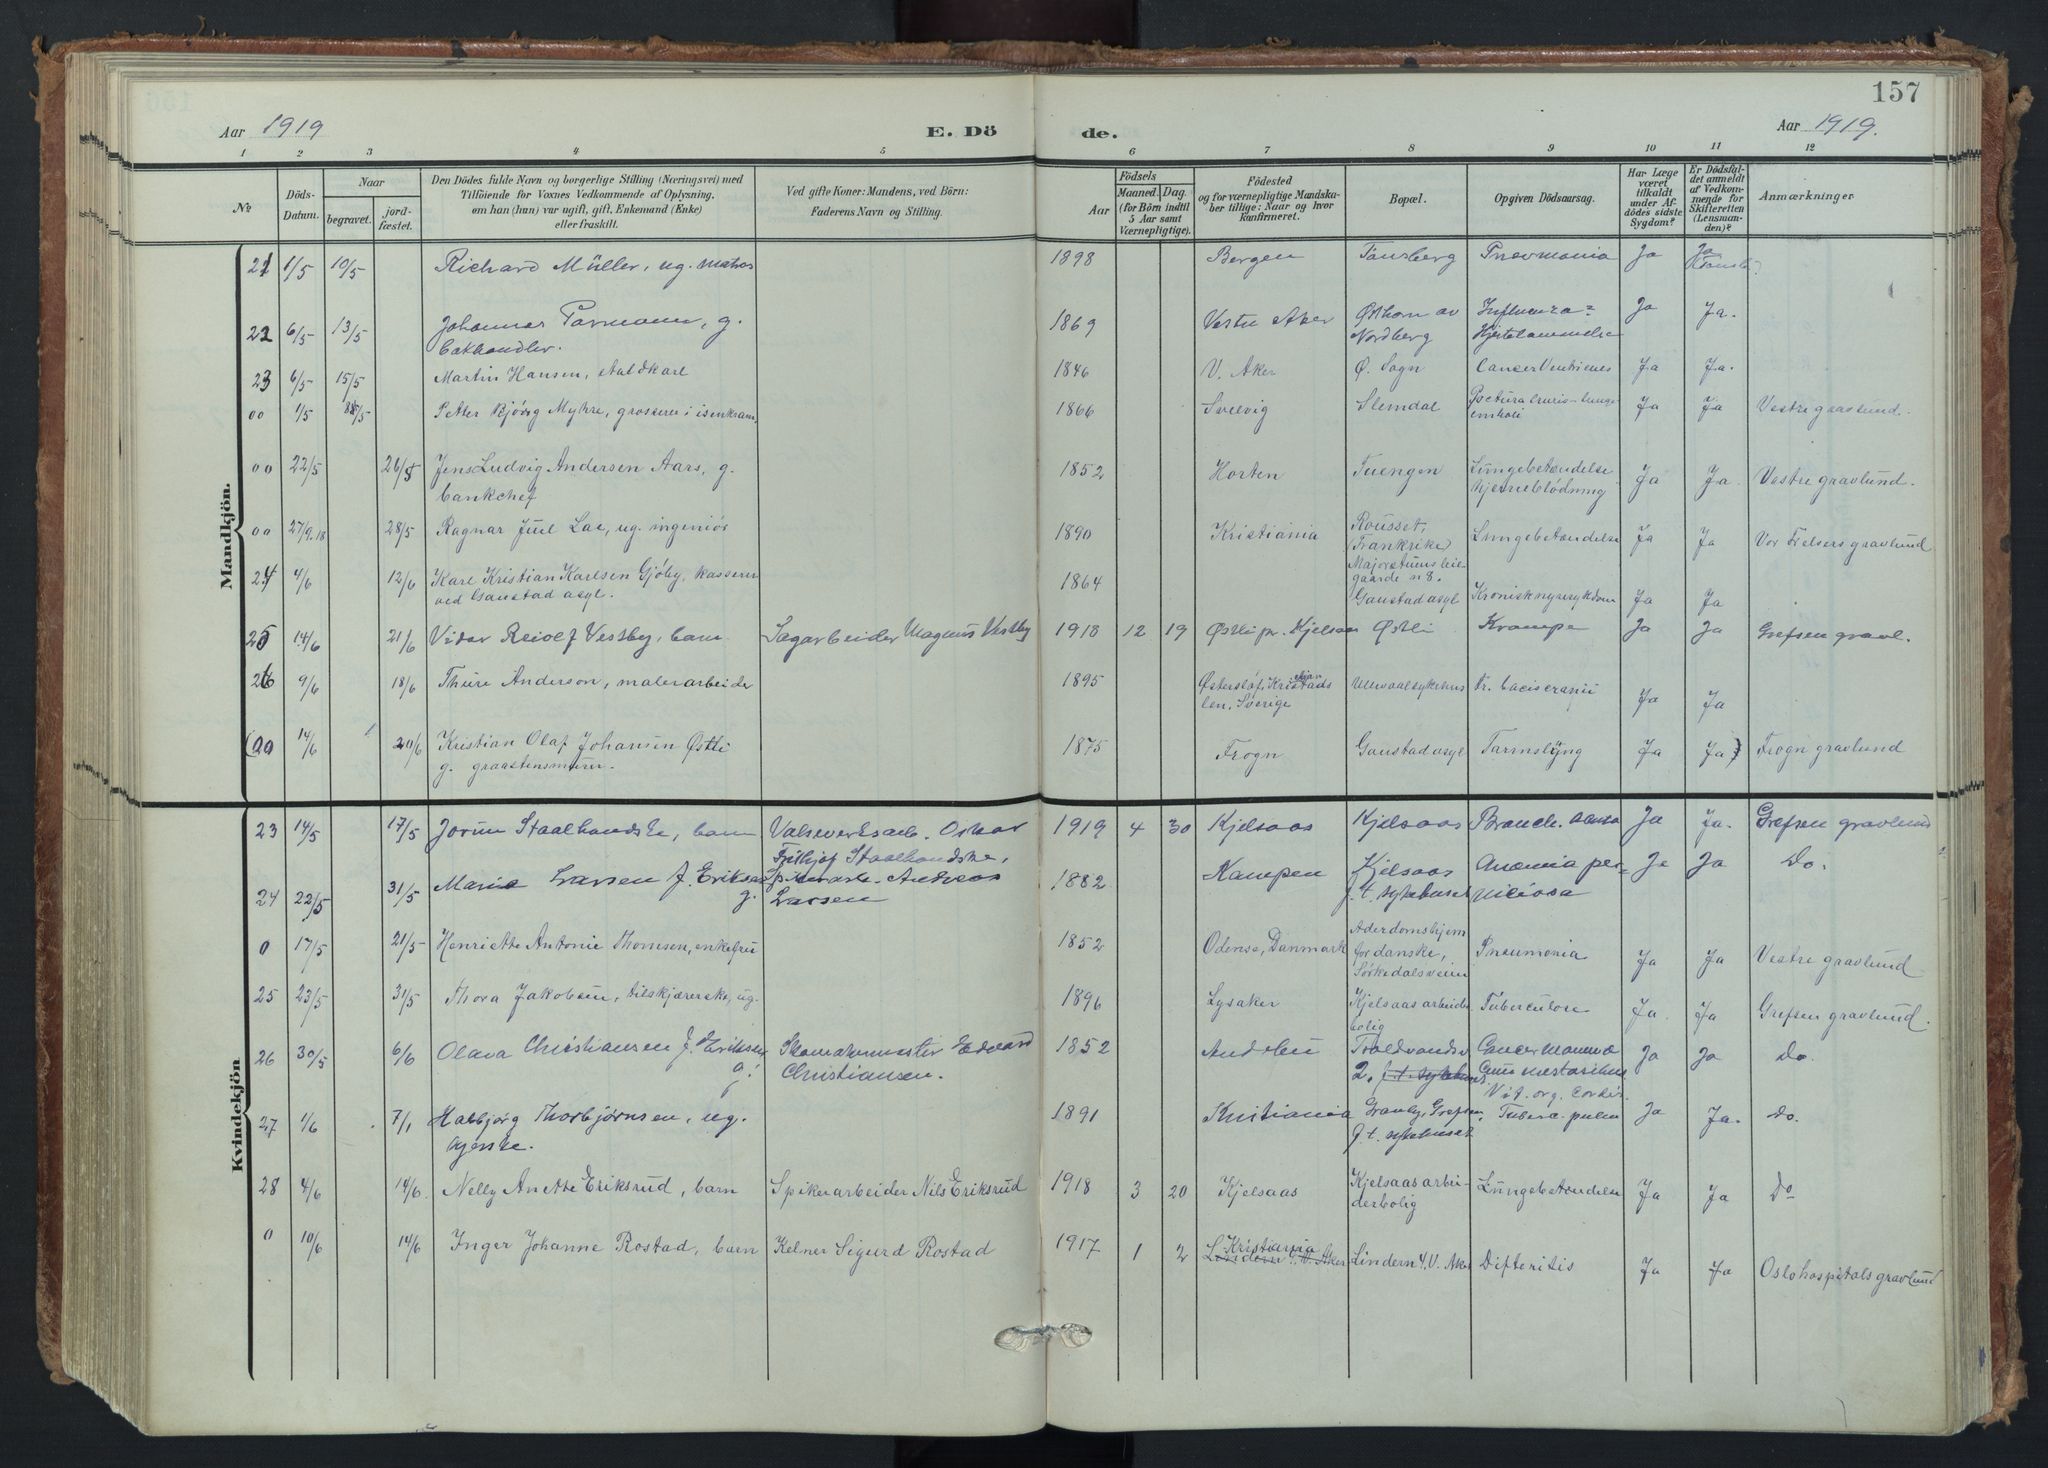 157
Aar 1919
E. Dö
de.
Aar 1919.
1 2 3 4 5 6 7 8 9 10 11 12
№
Döds-
Datum.
Naar
begravet.
jord-
fæstet.
Den Dödes fulde Navn og borgerlige Stilling (Næringsvei) med
Tilföiende for Voxnes Vedkommende af Oplysning,
om han (hun) var ugift, gift, Enkemand (Enke)
eller fraskilt.
Ved gifte Koner: Mandens, ved Börn:
Faderens Navn og Stilling.
Födsels
Aar
Maaned. Dag.
(for Börn indtil
5 Aar samt
Værnepligtige).
Födested
og for værnepligtige Mandska-
ber tillige: Naar og hvor
konfirmeret.
Bopæl.
Opgiven Dödsaarsag.
Har Læge
været
tilkaldt
under Af-
dödes sidste
Sygdom?
Er Dödsfal-
det anmeldt
af Vedkom-
mende for
Skifteretten
(Lensman-
den)?
Anmærkninger
Mandkjön.
21 1/5 10/5 Richard Müller, ug. matros 1898 Bergen Tönsberg Pnevmonia Ja Ja
22 6/5 13/5 Johannes Parmann, g. 1869 Vestre Aker Østhorn av Influenza= Ja Ja.
bokhandler. Nordberg Hjertelammelse
23 6/5 15/5 Martin Hansen, staldkarl 1846 V. Aker Ø. Sogn Cancer Ja Ja.
00 1/5 Petter Bjöng Myhre, grosserer i isenkram, 1866 Svelvig Slemdal Ja Ja Vestre gravlund.
00 22/5 26/5 Jens Ludvig Andersen Aars, g. 1852 Horten Tuengen Lungebetændelse Ja Ja. Vestre gravlund.
bankchef hjerneblödning
00 27/9.18 28/5 Ragnar Juul Lae, ug. ingeniör 1890 Kristiania Rousset, Lungebetændelse Ja Ja Vor Frelsers gravlund
(Frankrike)
24 4/6 12/6 Karl Kristian Karlsen Gjöby, kasserer 1864 Majorstuens leie-
gaarde n 8.
ved Gaustad asyl. Gaustad asyl Kronisk nyresykdom Ja Ja
25 14/6 21/6 Vidar Reiolf Vestby, barn Sagarbeider Magnus Vestby 1918 12 19 Østli pr. Kjelsaas Østli Krampe Ja Ja Grefsen gravl.
26 9/6 18/6 Thure Anderson, malerarbeider 1895 Östersløf, Kristians Ullevaal sykehus Fr. basis cranii Ja Ja
len, Sverige
(00 14/6 20/6 Kristian Olaf Johansen Østli 1875 Frogn Gaustad asyl Tarmslyng Ja Ja) Frogn gravlund
g. graastensmurer.
Kvindekjön
23 14/5 17/5 Jorun Staalhandske, barn Valseverksarb. Oskar 1919 4 30 Kjelsaas Kjelsaas Ja Ja. Grefsen gravlund
Fritjof Staalhandske,
24 22/5 31/5 Marie Larsen f. Eriksen Andreas 1882 Kampen Kjelsaas Anæmia per- Ja Ja Do.
g. Larsen f. t. sykehuset niciosa
0 17/5 21/5 Henriette Antonie Thomsen, enkefru 1852 Odense, Danmark Alderdomshjem Pneumonia Ja Ja Vestre gravlund
for danske,
Sörkedalsveien
25 23/5 31/5 Thora Jakobsen, tilskjærerske, ug. 1896 Lysaker Kjelsaas arbeider Tuberculose Ja. Ja Grefsen gravlund.
bolig
26 30/5 6/6 Olava Christiansen f. Eriksen Skomakermester Edvard 1852 Cancer mammæ Ja Ja Do.
g. Christiansen. 2, f. t. sykehuset
Vit. org. cordis.
27 1/6 Halbjörg Thorbjørnsen, ug. 1891 Kristiania Granly, Grefsen, Tuberc. pulm Ja Ja. Do.
syerske. f. t. sykehuset
28 4/6 14/6. Nelly Anette Eriksrud, barn Spikerarbeider Nils Eriksrud 1918 3 20 Kjelsaas Kjelsaas arbei- Lungebetændelse Ja Ja Do
derbolig
0 10/6 14/6 Inger Johanne Rostad, barn Kelner Sigurd Rostad 1917 1 2 Kristiania
Lindern i V. Aker Lindern i V. Aker Difteritis Ja Ja Oslo hospitals gravlund